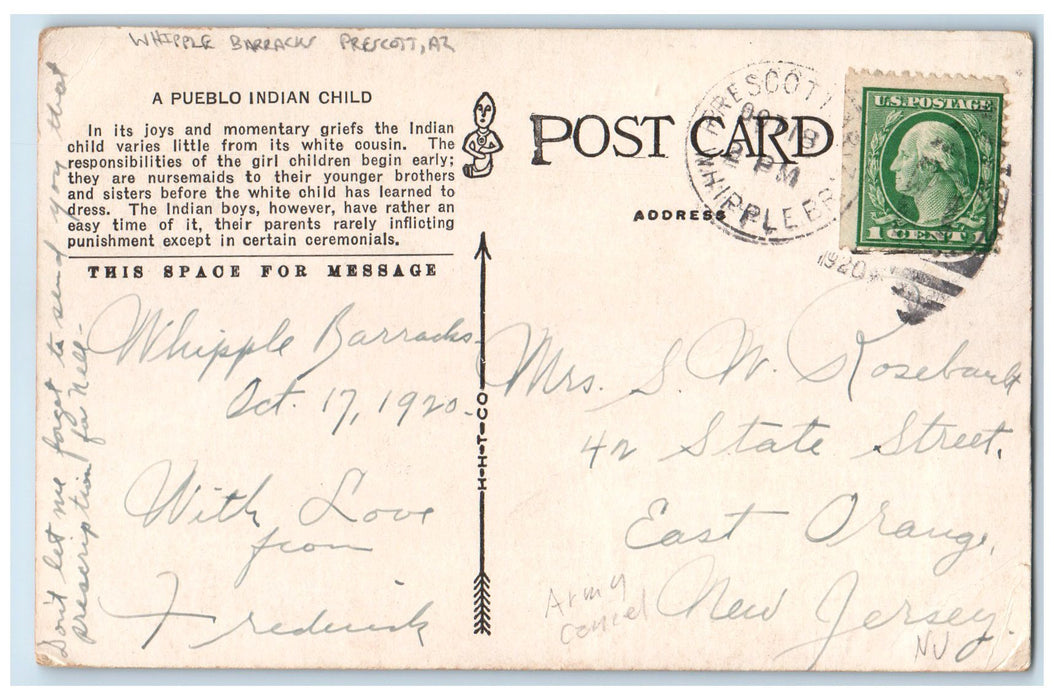 WHIPPLE BARRACKS PRESCOTT, AZ
A PUEBLO INDIAN CHILD
In its joys and momentary griefs the Indian
child varies little from its white cousin. The
responsibilities of the girl children begin early;
they are nursemaids to their younger brothers
and sisters before the white child has learned to
dress. The Indian boys, however, have rather an
easy time of it, their parents rarely inflicting
punishment except in certain ceremonials.
THIS SPACE FOR MESSAGE
Whipple Barracks
Oct. 17, 1920.
With Love
from
Frederick
Don't let me forget to send you that
prescription for Nell-
H-H-T-CO
POST CARD
ADDRESS
PRESCOTT
18
2 PM
WHIPPLE BR.
1920
U.S. POSTAGE
1 CENT 1
Mrs. S. W. Rosebault
42 State Street,
East Orange,
New Jersey.
Army
Cancel
NJ